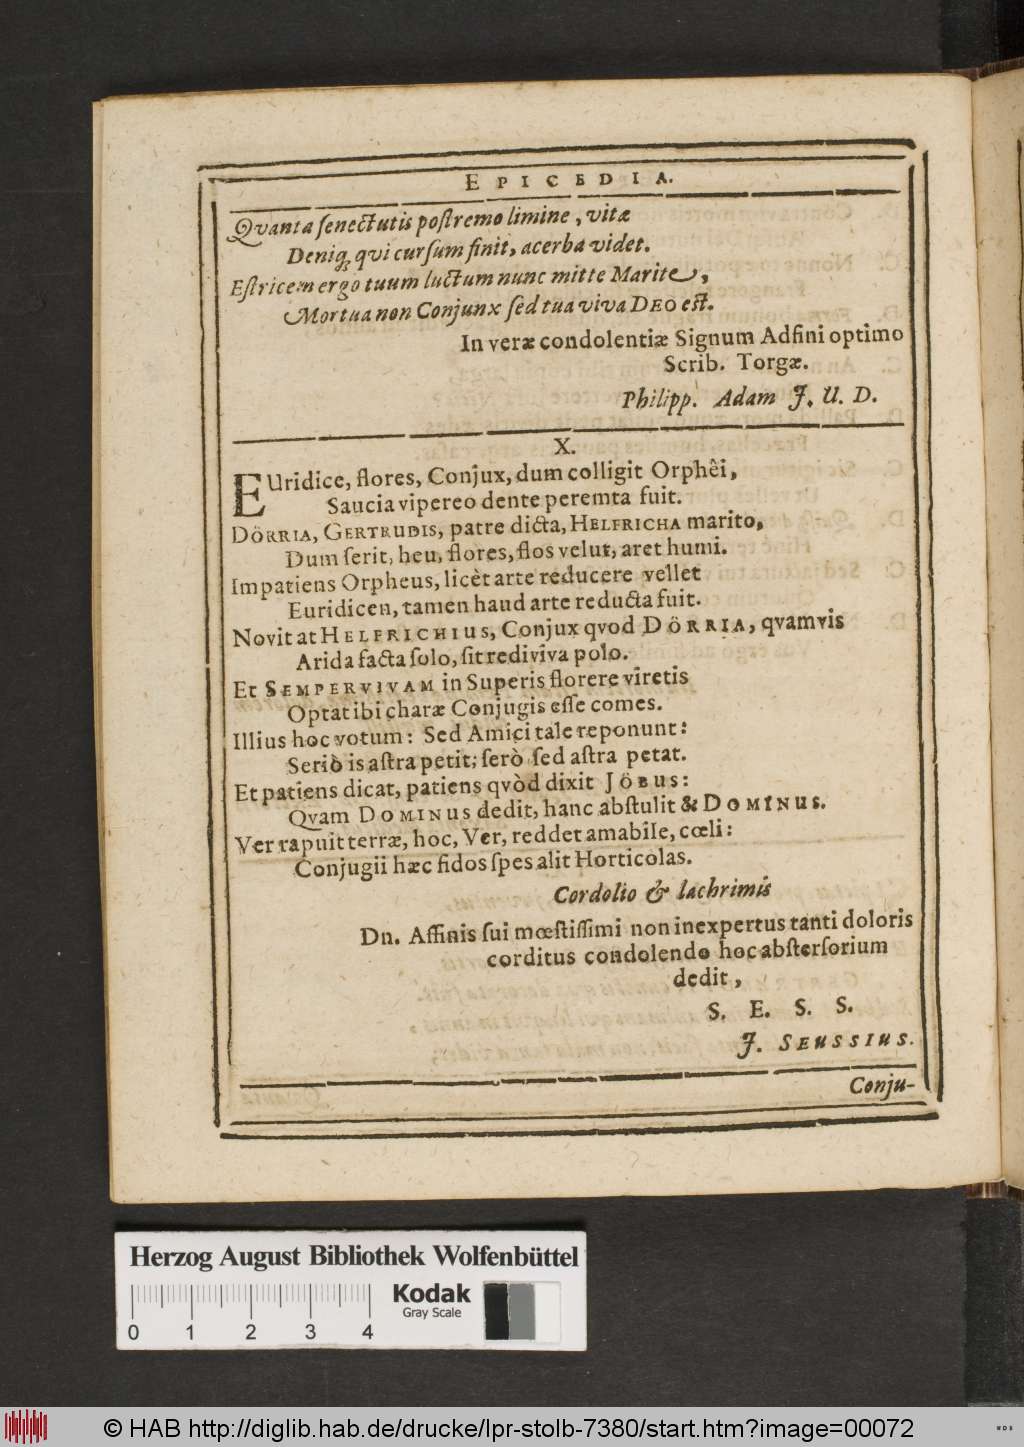 EPICEDIA.
Qvanta ſenectutis poſtremo limine, vitæ
Deniq; qvi curſum finit, acerba videt.
Eſtricem ergo tuum luctum nunc mitte Marite,
Mortua non Conjunx ſed tua viva DEO eſt.
In veræ condolentiæ Signum Adfini optimo
Scrib. Torgæ.
Philipp. Adam J. U. D.
X.
EUridice, flores, Conjux, dum colligit Orphêi,
Saucia vipereo dente peremta fuit.
DÖRRIA, GERTRUDIS, patre dicta, HELFRICHA marito,
Dum ſerit, heu, flores, flos velut, aret humi.
Impatiens Orpheus, licèt arte reducere vellet
Euridicen, tamen haud arte reducta fuit.
Novit at HELFRICHIUS, Conjux qvod DÖRRIA, qvamvis
Arida facta ſolo, ſit rediviva polo.
Et SEMPERVIVAM in Superis florere viretis
Optat ibi charæ Conjugis eſſe comes.
Illius hoc votum: Sed Amici tale reponunt:
Seriò is aſtra petit; ſerò ſed aſtra petat.
Et patiens dicat, patiens qvòd dixit JÖBUS:
Qvam DOMINUS dedit, hanc abſtulit & DOMINUS.
Ver rapuit terræ, hoc, Ver, reddet amabile, cœli:
Conjugii hæc fidos ſpes alit Horticolas.
Cordolio & lachrimis
Dn. Affinis ſui mœſtiſſimi non inexpertus tanti doloris
corditus condolendo hoc abſterſorium
dedit,
S. E. S. S.
J. SEUSSIUS.
Conju-
Herzog August Bibliothek Wolfenbüttel
Kodak
Gray Scale
0 1 2 3 4
© HAB http://diglib.hab.de/drucke/lpr-stolb-7380/start.htm?image=00072